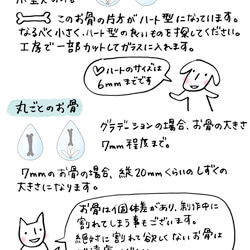 このお骨の片方がハート型になっています。
なるべく小さく、ハート型の良いものを探してください。
工房で一部カットしてガラスに入れます。
♡ハートのサイズは
6mmまでです
丸ごとのお骨
グラデーションの場合、お骨の大きさ
7mm程度まで。
7mmのお骨の場合、縦20mmくらいのしずくの
大きさになります。
お骨は個体差があり、制作中に
割れてしまう事もございます。
絶対に割れて欲しくないお骨は